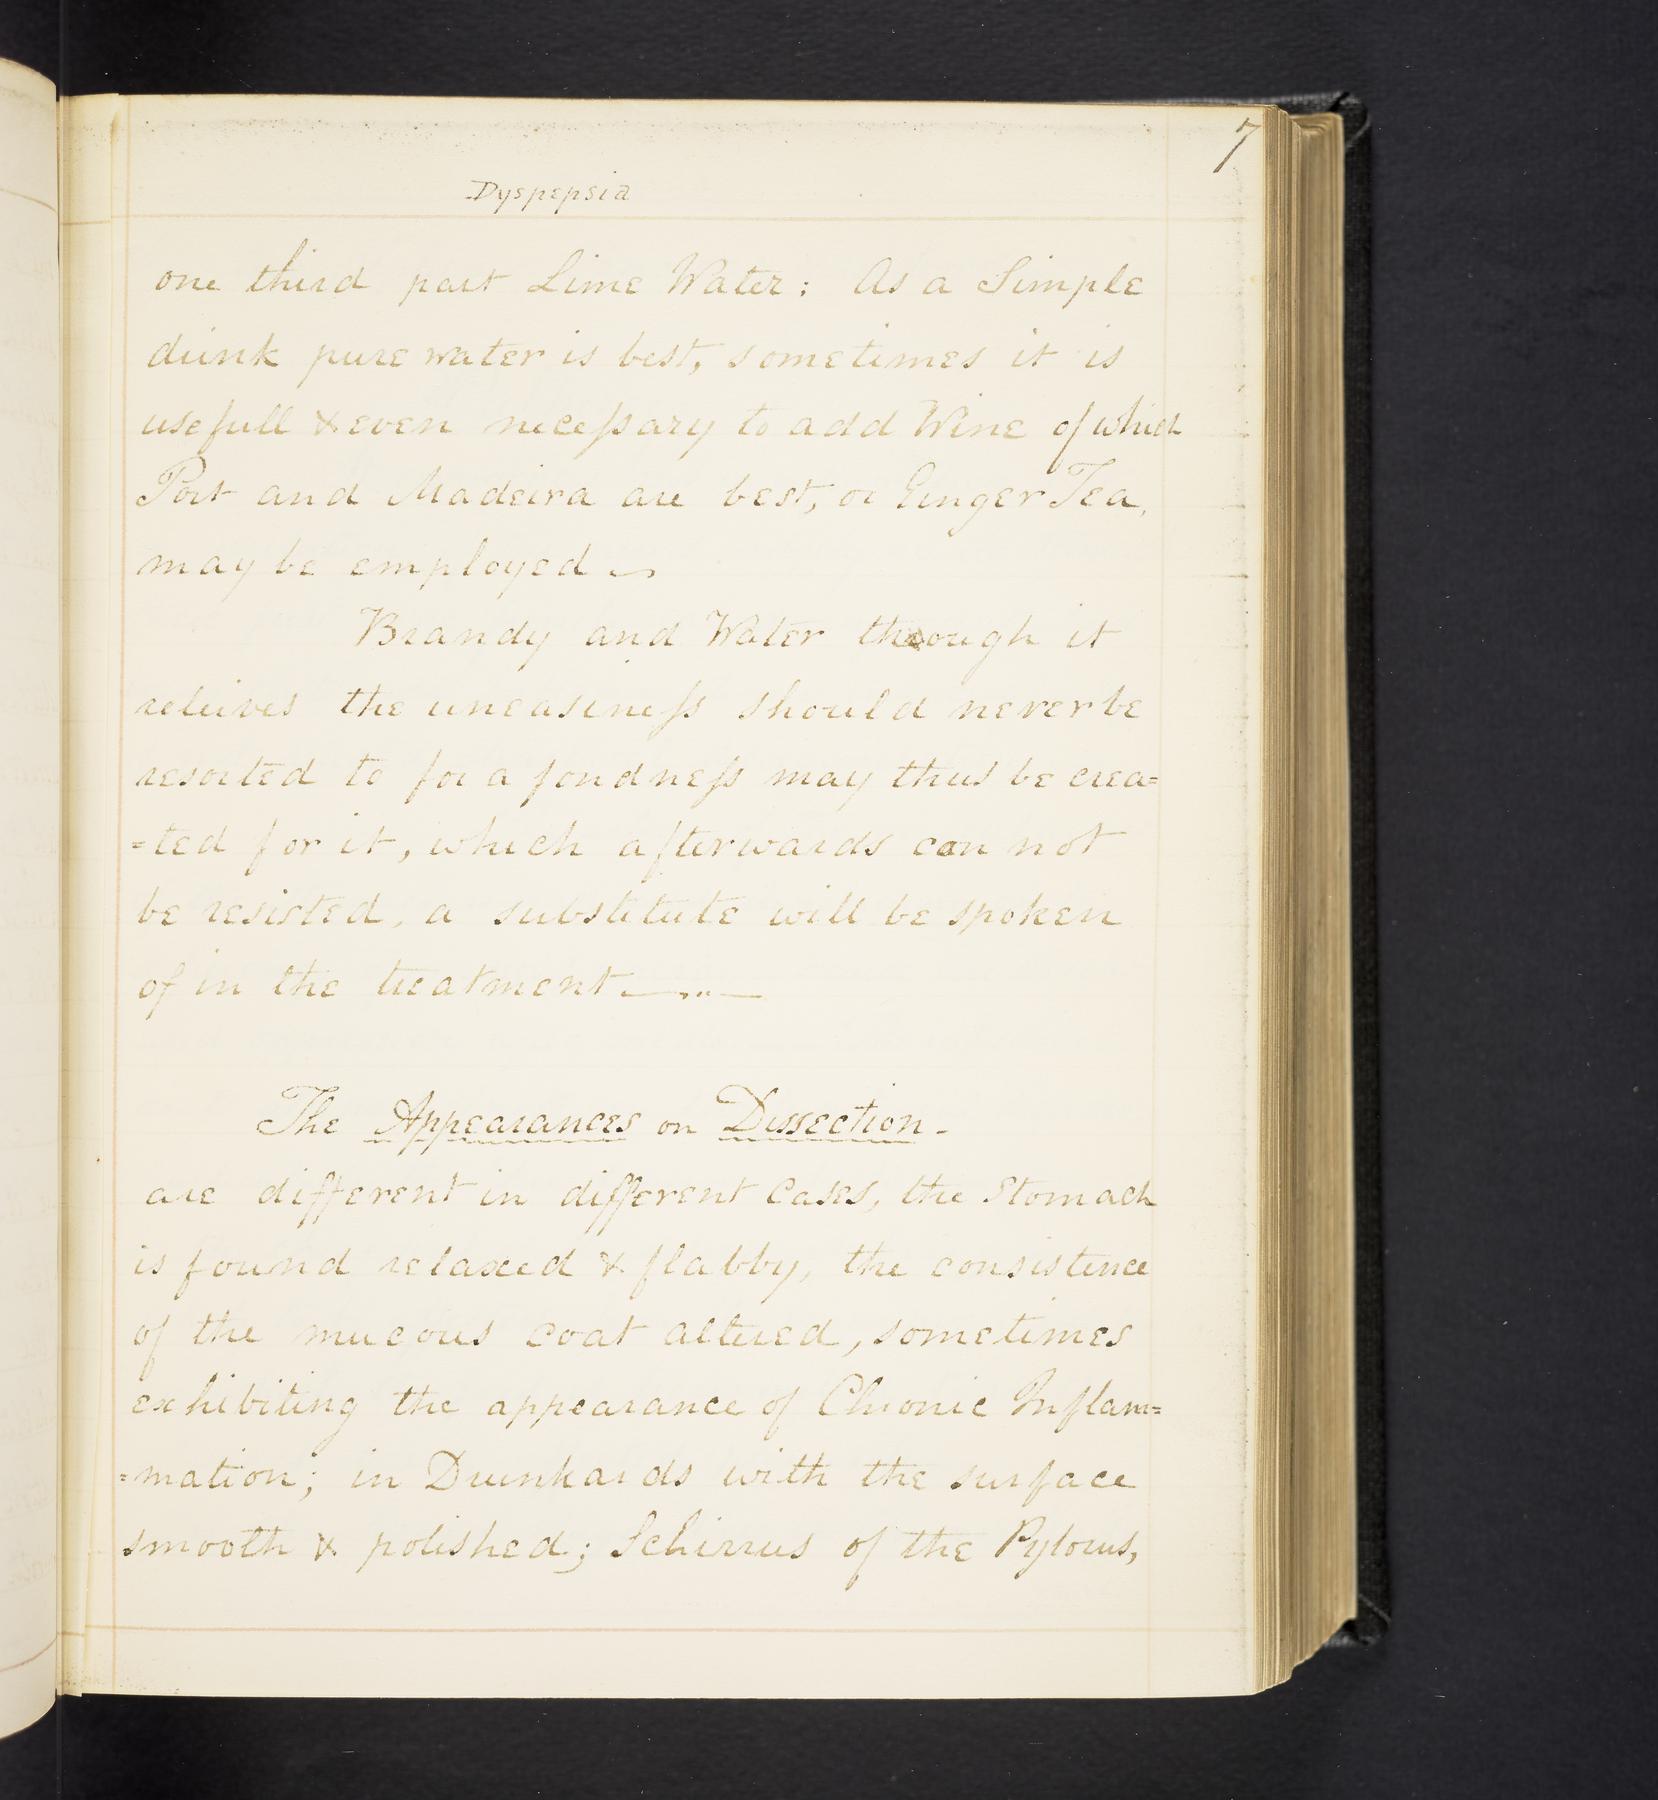 7
Dyspepsia
one third part Lime Water: As a Simple
drink pure water is best, sometimes it is
usefull & even necessary to add Wine of which
Port and Madeira are best, or Ginger Tea,
may be employed
Brandy and Water though it
releives the uneasiness should never be
resorted to for a fondness may thus be crea=
=ted for it, which afterwards can not
be resisted, a substitute will be spoken
of in the treatment
The Appearances on Dissection -
are different in different Cases, the Stomach
is found relaxed & flabby, the consistence
of the mucous coat altered, sometimes
exhibiting the appearance of Chronic Inflam=
=mation; in Drunkards with the surface
smooth & polished; Schirrus of the Pylorus,